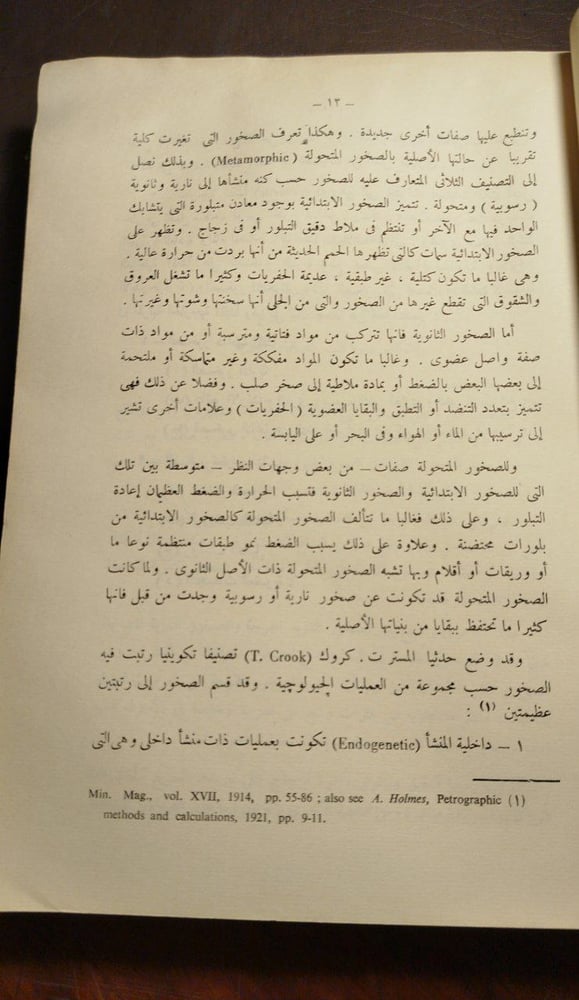 – ١٣ –
وتنطبع عليها صفات أخرى جديدة . وهكذا تعرف الصخور التى تغيرت كلية
تقريبا عن حالتها الأصلية بالصخور المتحولة (Metamorphic) . وبذلك نصل
إلى التصنيف الثلاثى المتعارف عليه للصخور حسب كنه منشأها إلى نارية وثانوية
( رسوبية ) ومتحولة . تتميز الصخور الابتدائية بوجود معادن متبلورة التى يتشابك
الواحد فيها مع الآخر أو تنتظم فى ملاط دقيق التبلور أو فى زجاج . وتظهر على
الصخور الابتدائية سمات كالتى تظهرها الحمم الحديثة من أنها بردت من حرارة عالية .
وهى غالبا ما تكون كتلية ، غير طبقية ، عديمة الحفريات وكثيرا ما تشغل العروق
والشقوق التى تقطع غيرها من الصخور والتى من الجلى أنها سخنتها وشوتها وغيرتها .
أما الصخور الثانوية فانها تتركب من مواد فتاتية ومترسبة أو من مواد ذات
صفة واصل عضوى . وغالبا ما تكون المواد مفككة وغير متماسكة أو ملتحمة
إلى بعضها البعض بالضغط أو بمادة ملاطية إلى صخر صلب . وفضلا عن ذلك فهى
تتميز بتعدد التنضد أو التطبق والبقايا العضوية ( الحفريات ) وعلامات أخرى تشير
إلى ترسيبها من الماء أو الهواء وفى البحر أو على اليابسة .
وللصخور المتحولة صفات – من بعض وجهات النظر – متوسطة بين تلك
التى للصخور الابتدائية والصخور الثانوية فتسبب الحرارة والضغط العظيمان إعادة
التبلور ، وعلى ذلك فغالبا ما تتألف الصخور المتحولة كالصخور الابتدائية من
بلورات محتضنة . وعلاوة على ذلك يسبب الضغط نمو طبقات منتظمة نوعا ما
أو وريقات أو أقلام وبها تشبه الصخور المتحولة ذات الأصل الثانوى . ولما كانت
الصخور المتحولة قد تكونت عن صخور نارية أو رسوبية وجدت من قبل فانها
كثيرا ما تحتفظ ببقايا من بنياتها الأصلية .
وقد وضع حدثيا المستر ت. كروك (T. Crook) تصنيفا تكوينيا رتبت فيه
الصخور حسب مجموعة من العمليات الجيولوچية . وقد قسم الصخور إلى رتبتين
عظيمتين (١) :
١ – داخلية المنشأ (Endogenetic) تكونت بعمليات ذات منشأ داخلى وهى التى
Min. Mag., vol. XVII, 1914, pp. 55-86 ; also see A. Holmes, Petrographic (١)
methods and calculations, 1921, pp. 9-11.